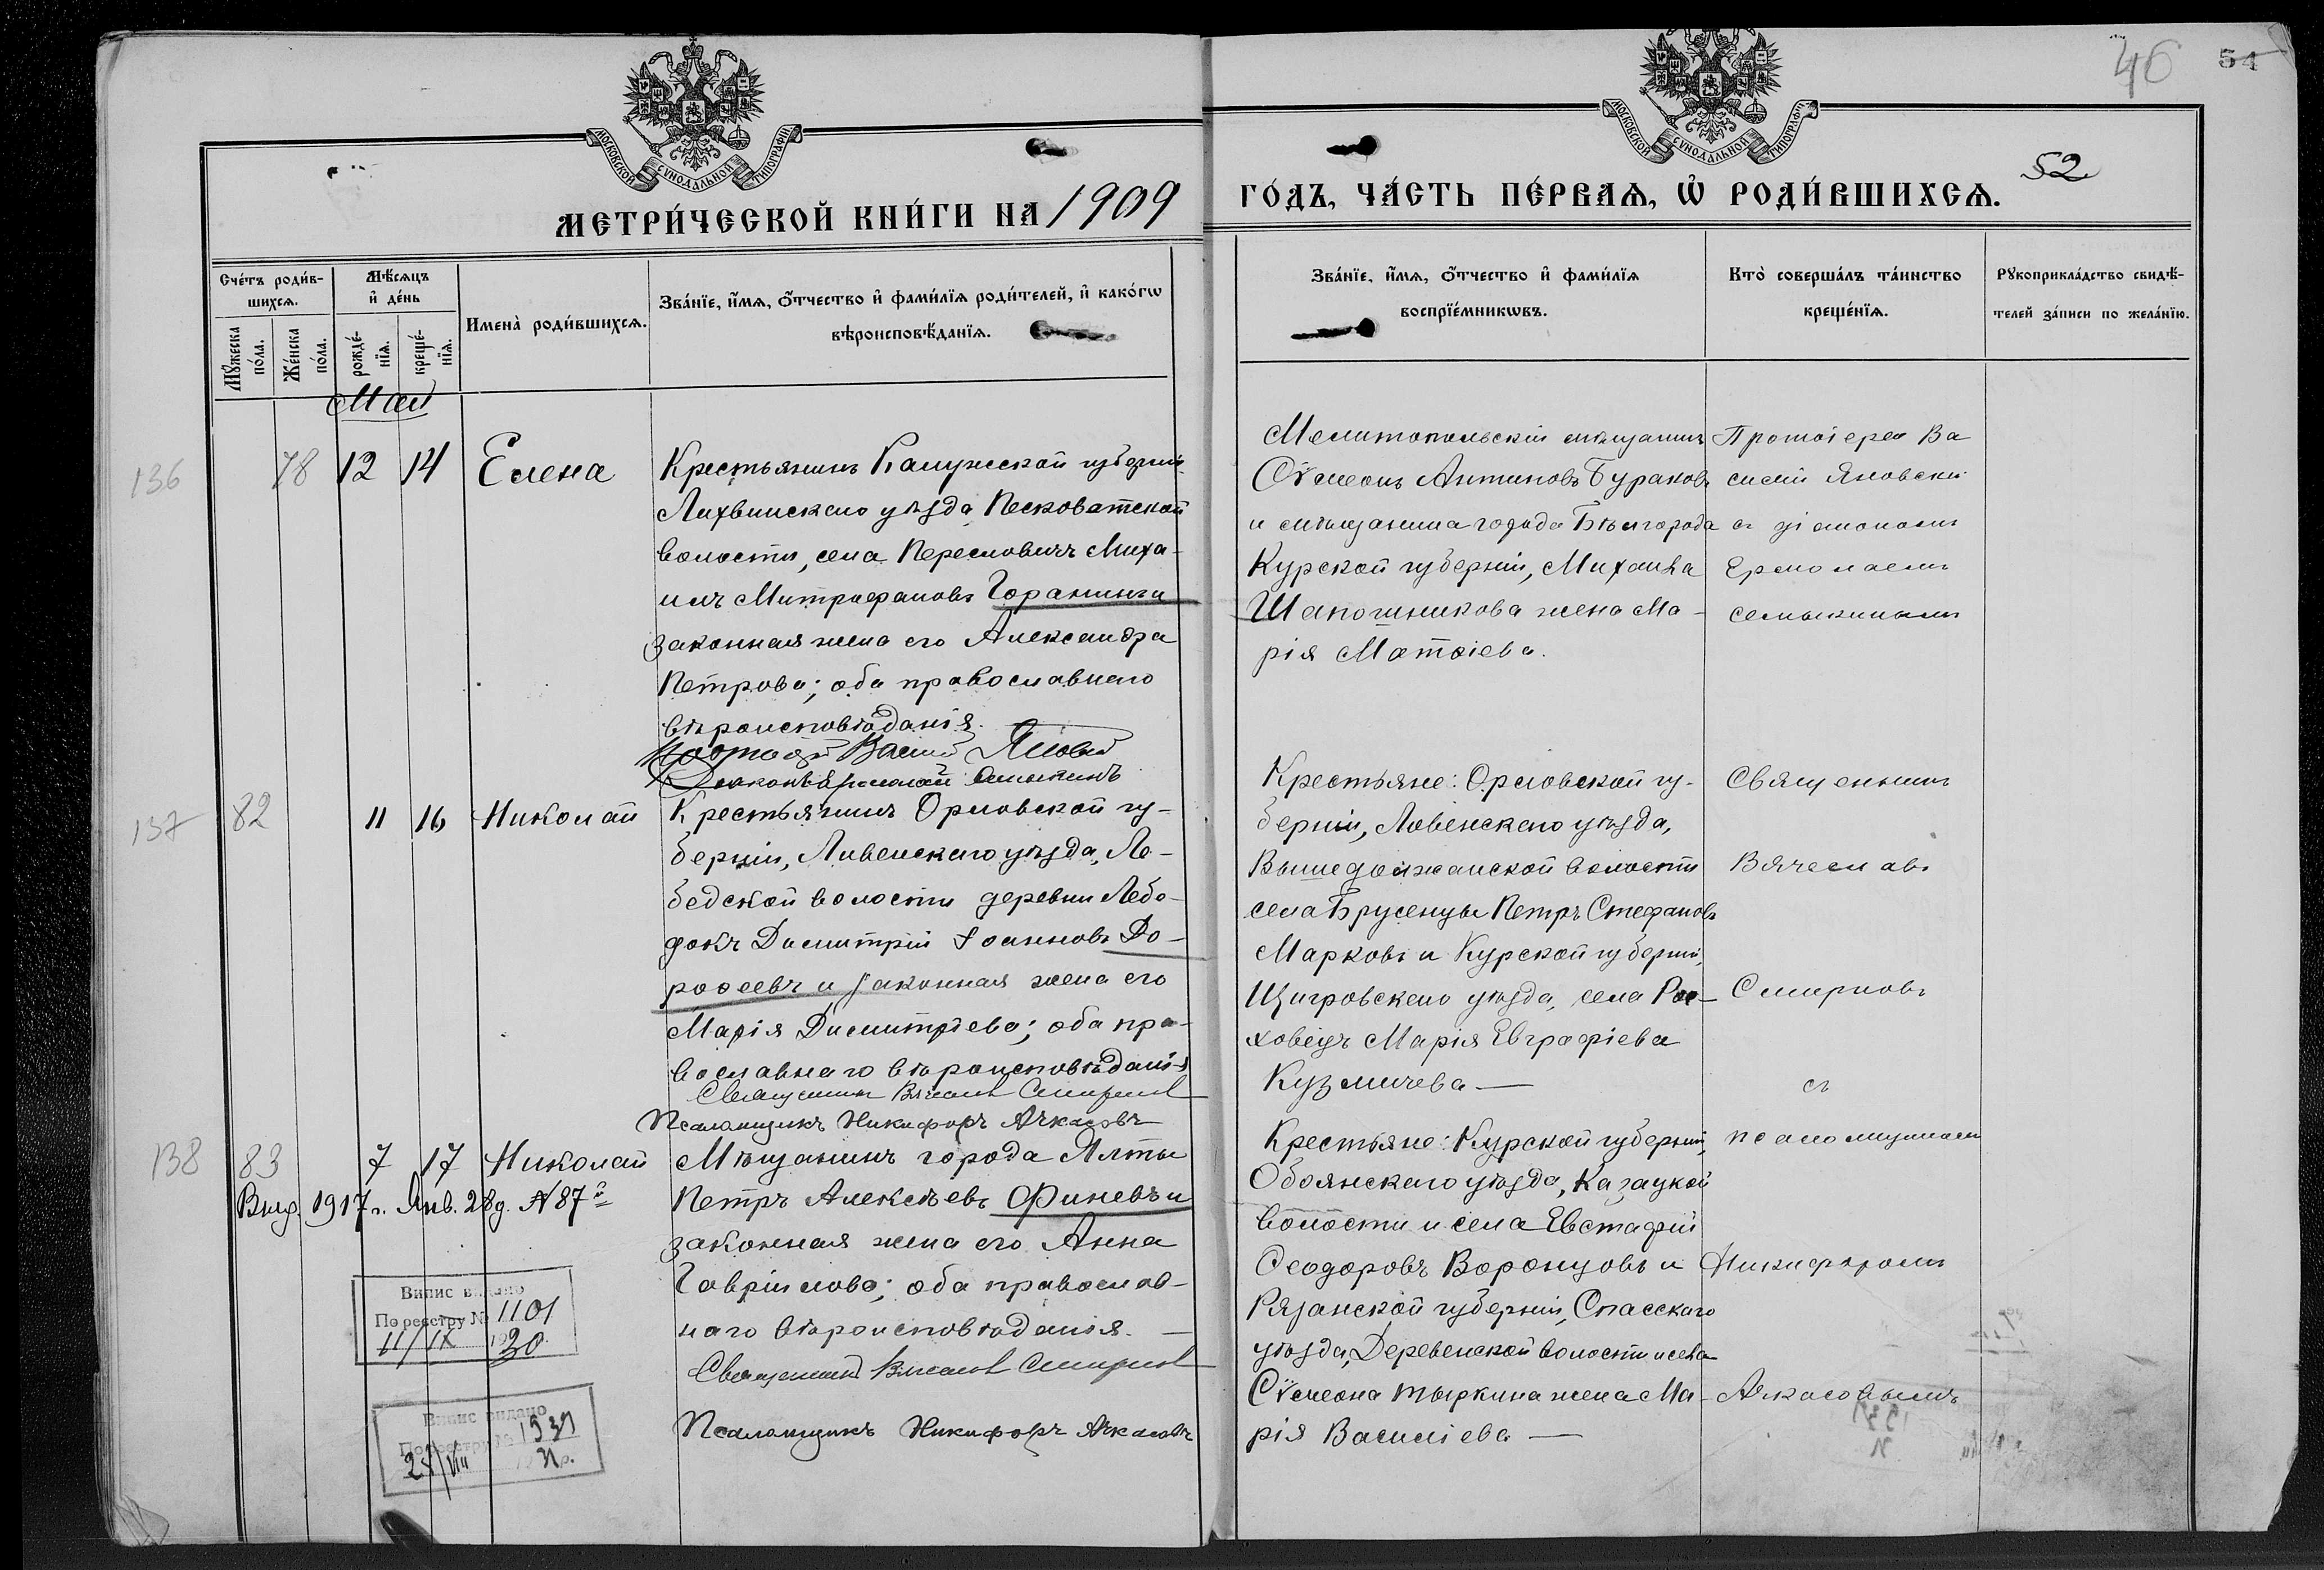 46
54
52
МОСКОВСКОЙ СѴНОДАЛЬНОЙ ТИПОГРАФІИ
МОСКОВСКОЙ СѴНОДАЛЬНОЙ ТИПОГРАФІИ
МЕТРИ́ЧЕСКОЙ КНИ́ГИ НА 1909
ГО́ДЪ, ЧА́СТЬ ПЕ́РВАѦ, Ѡ҆ РОДИ́ВШИХСѦ.
Сче́тъ роди́в-
шихсѧ.
Мꙋ́жеска по́ла.
Же́нска по́ла.
Мѣ́сѧцъ
и҆ де́нь
рожде́-
нїѧ.
креще́-
нїѧ.
Имена̀ роди́вшихсѧ.
Зва́нїе, и҆́мѧ, ѻ҆́тчество и҆ фами́лїѧ роди́телей, и҆ како́гѡ
вѣроисповѣ́данїѧ.
Зва́нїе, и҆́мѧ, ѻ҆́тчество и҆ фами́лїѧ
воспрїе́мникѡвъ.
Кто̀ соверша́лъ та́инство
креще́нїѧ.
Рꙋкоприкла́дство свидѣ́-
телей за́писи по жела́нїю.
Май
136
78 12 14 Елена
Крестьянинъ Калужской губерніи
Лихвинскаго уѣзда Песковатской
волости, села Переславичъ Миха-
илъ Митрофановъ Горанинъ и
законная жена его Александра
Петрова; оба православнаго
вѣроисповѣданія.
Протоіер. Василій Яновскій
Діаконъ Ермолай Семыкинъ
Мелитопольскій мѣщанинъ
Сѵмеонъ Антиновъ Бураковъ
и мѣщанина города Бѣлгорода
Курской губерніи, Михаила
Шапошникова жена Ма-
рія Матѳіева.
Протоіерей Ва
силій Яновскій
съ діакономъ
Ермолаемъ
Семыкинымъ
137
82 11 16 Николай
Крестьянинъ Орловской гу-
берніи, Ливенскаго уѣзда, Ле-
бедской волости деревни Лебе-
докъ Димитрій Іоанновъ До-
роѳеевъ и законная жена его
Марія Димитріева; оба пра-
вославнаго вѣроисповѣданія
Священникъ Вячеслав Смирнов
Псаломщикъ Никифоръ Ачкасовъ
Крестьяне: Орловской гу-
берніи, Ливенскаго уѣзда,
Вышедолжанской волости
села Брусенцы Петръ Стефановъ
Марковъ и Курской губерніи,
Щигровскаго уѣзда, села Рас-
ховецъ Марія Евграфіева
Кузмичева —
Священникъ
Вячеславъ
Смирновъ
съ
138
83 7 17 Николай
Выд. 1917 г. Янв. 28 д. № 87
Мѣщанинъ города Ялты
Петръ Алексѣевъ Финевъ и
законная жена его Анна
Гавріилова; оба православ-
наго вѣроисповѣданія. —
Священник Вячеслав Смирнов
Псаломщикъ Никифоръ Ачкасовъ
Крестьяне: Курской губерніи,
Обоянскаго уѣзда, Казацкой
волости и села Евстафій
Ѳеодоровъ Воронцовъ и
Рязанской губерніи, Спасскаго
уѣзда, Деревенской волости и села
Сѵмеона Тыркина жена Ма-
рія Василіева —
псаломщикомъ
Никифоромъ
Ачкасовымъ
Випис видано
По реєстру № 1101
11/IX 1920
Випис видано
По реєстру № 1939
28/VIII